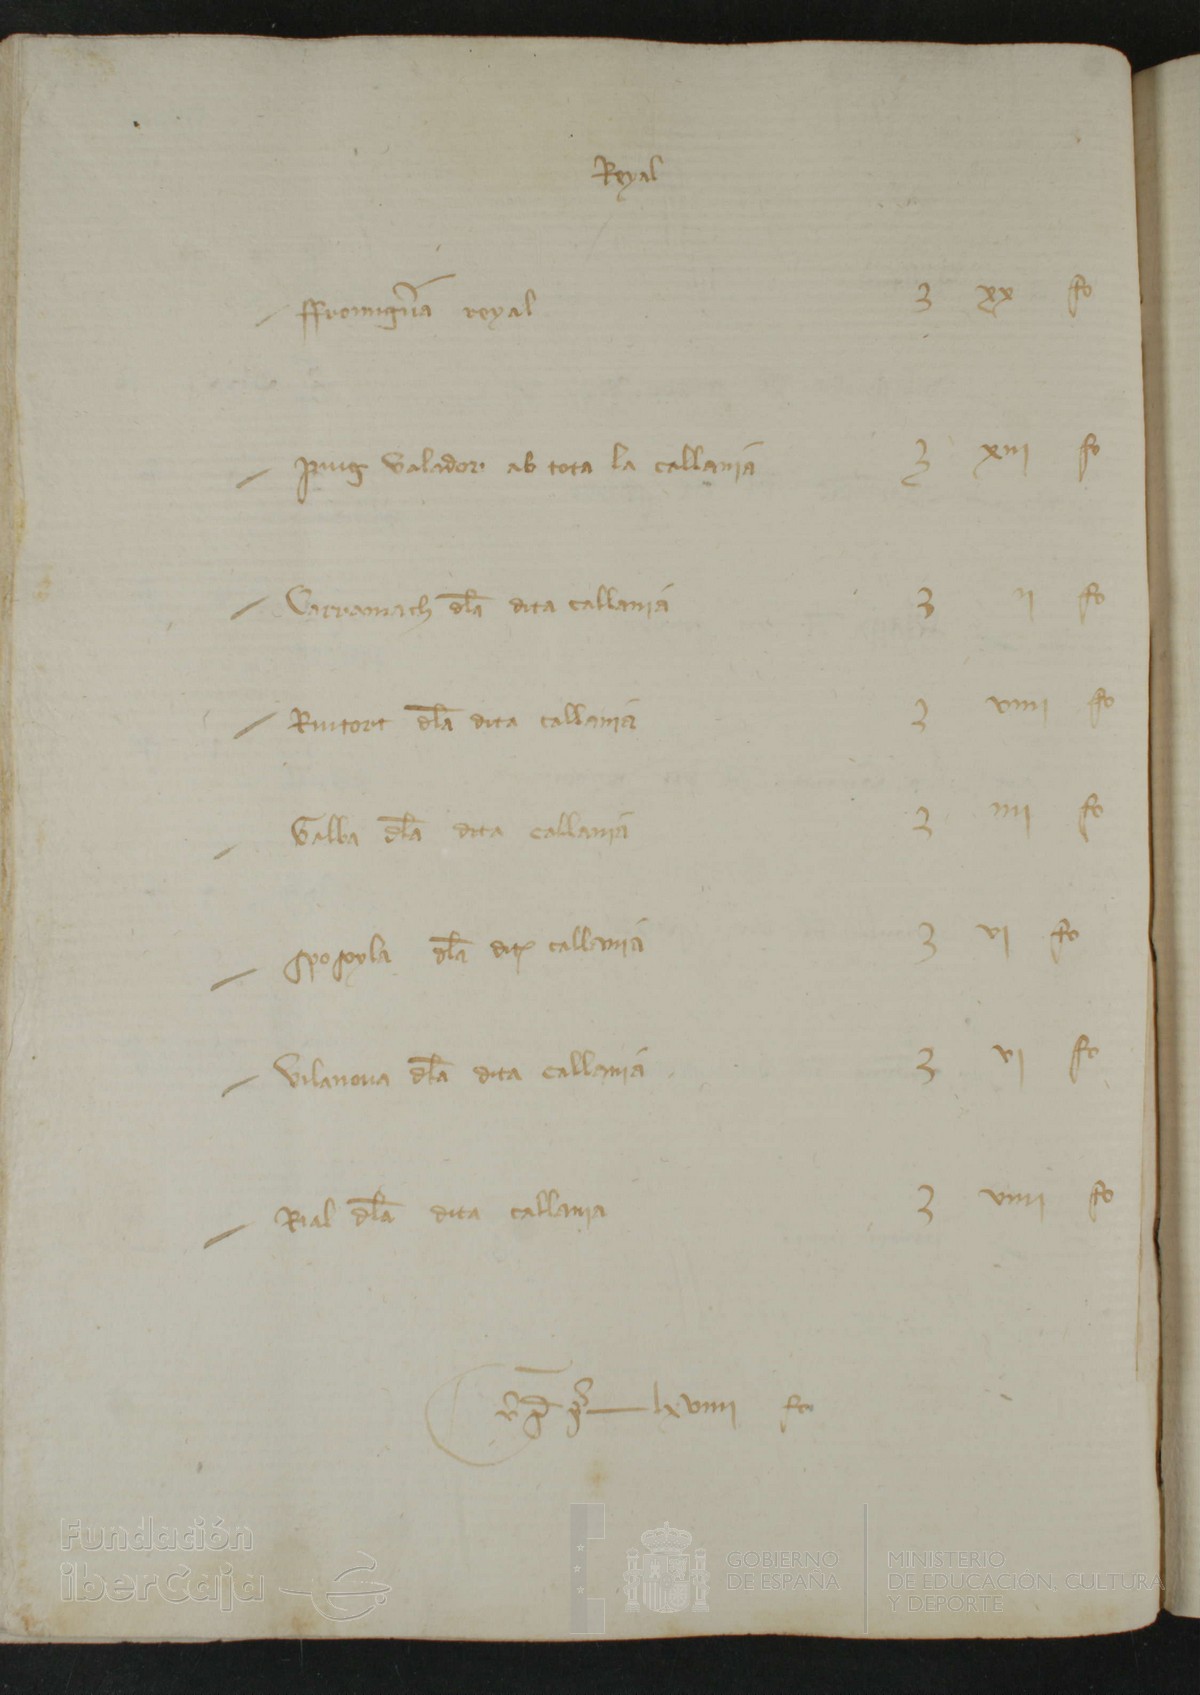 Reyal
ffromiguera reyal 3 xx fo
Puig Valador ab tota la castlania 3 xiii fo
Carramach dla dita castlania 3 ii fo
Riutort dla dita castlania 3 viiii fo
Valba dla dita castlania 3 iiii fo
dla dita castlania 3 vi fo
Vilanova dla dita castlania 3 vi fo
Rial dla dita castlania 3 viiii fo
lxviiii fo
Fundación
iberCaja
GOBIERNO
DE ESPAÑA
MINISTERIO
DE EDUCACIÓN, CULTURA
Y DEPORTE